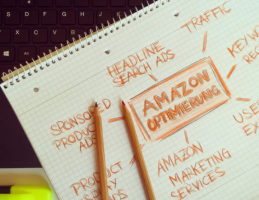 TRAFFIC
HEADLINE
SEARCH ADS
AMAZON
OPTIMIERUNG
SPONSORED
PRODUCT
ADS
AMAZON
MARKETING
SERVICES
PRODUCT
ADS